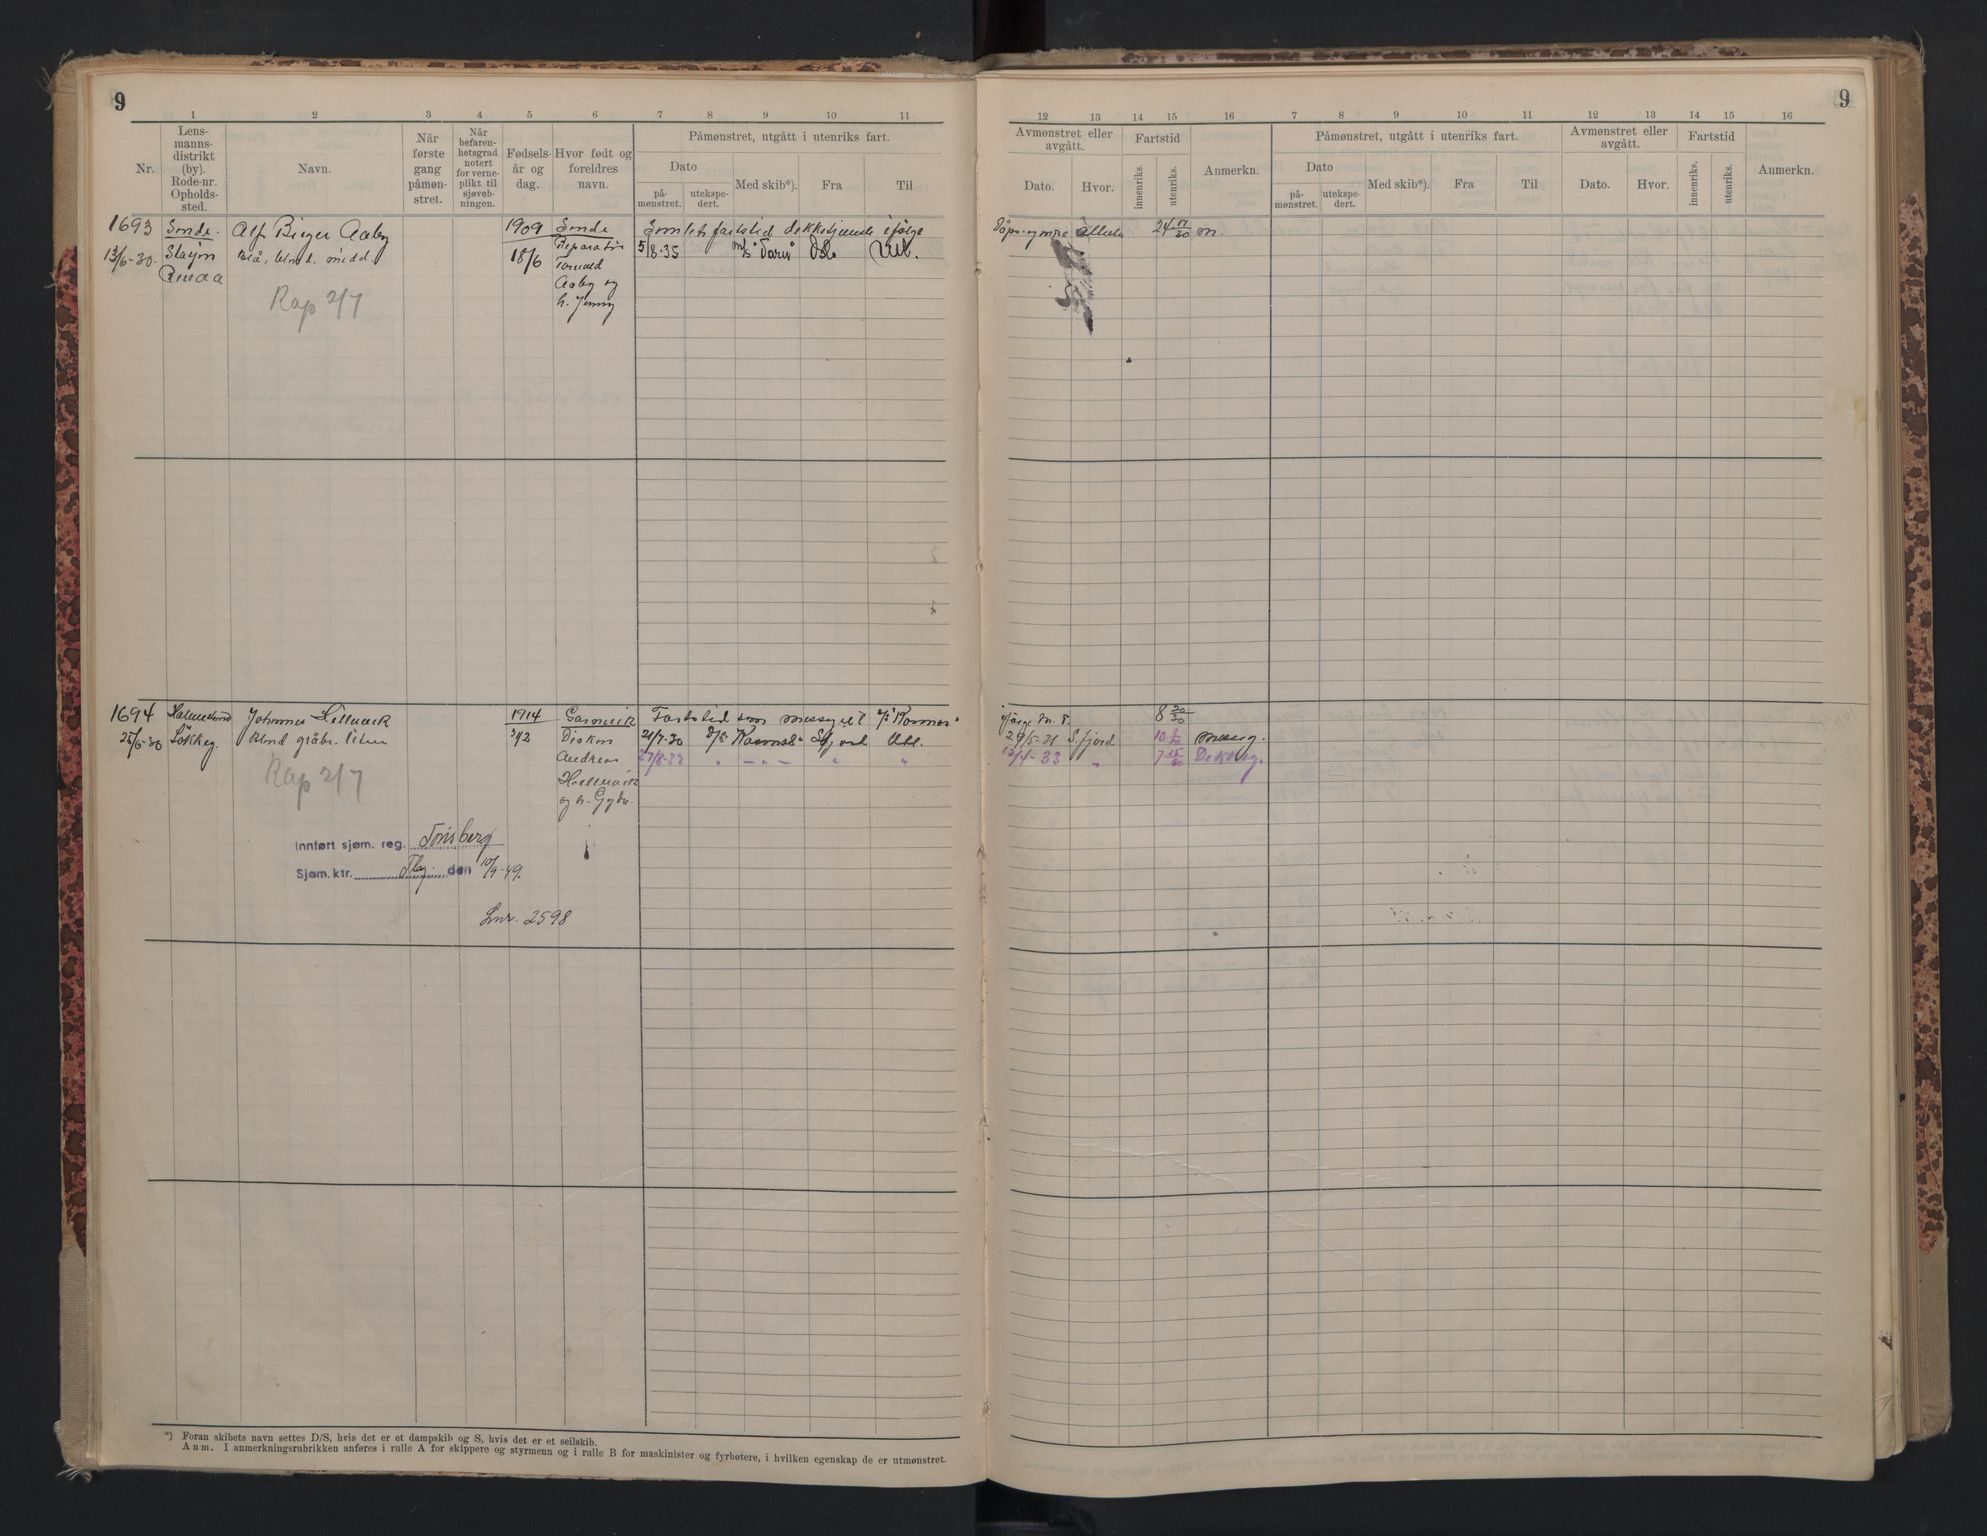 9
1 2 3 4 5 6 7 8 9 10 11
Nr.
Lens-
manns-
distrikt
(by).
Rode-nr.
Opholds-
sted.
Navn.
Når
første
gang
påmøn-
stret.
Når
befaren-
hetsgrad
notert
for verne-
plikt til
sjøveb-
ningen.
Fødsels-
år og
dag.
Hvor født og
foreldres
navn.
Påmønstret, utgått i utenriks fart.
Dato
på-
mønstret.
utekspe-
dert.
Med skib*).
Fra
Til
1693
13/6-30.
Alf Birger Aaby
Blå, blond, midd.
Rap 2/7
1909
18/6
Sande
Reparatør
Aaby og
h. Jenny
Samlet fartstid dekkstjeneste ifølge
5/8-35
Oslo
Utl.
1694
25/6-30
Johannes Hillevik
Blond gråbr. liten
Rap 2/7
1914
3/12
Andreas
Fartstid som messegut
"Kosmos"
21/7-30 D/S "Kosmos" Sfjord Utl.
27/8-32 " — " — " "
Innført sjøm. reg. Tønsberg
Sjøm. ktr. den 10/9-49.
Lnr. 2598
*) Foran skibets navn settes D/S, hvis det er et dampskib og S, hvis det er et seilskib.
Anm. I anmerkningsrubrikken anføres i rulle A for skippere og styrmenn og i rulle B for maskinister og fyrbøtere, i hvilken egenskap de er utmønstret.
9
12 13 14 15 16 7 8 9 10 11 12 13 14 15 16
Avmønstret eller
avgått.
Dato.
Hvor.
Fartstid
innenriks.
utenriks.
Anmerkn.
Påmønstret, utgått i utenriks fart.
Dato
på-
mønstret.
utekspe-
dert.
Med skib*).
Fra
Til
Avmønstret eller
avgått.
Dato.
Hvor.
Fartstid
innenriks.
utenriks.
Anmerkn.
24 17/30 m.
ifølge
8 20/30
29/5-31 S.fjord
messeg.
12/4-33 "
7 15/30 Dekksg.